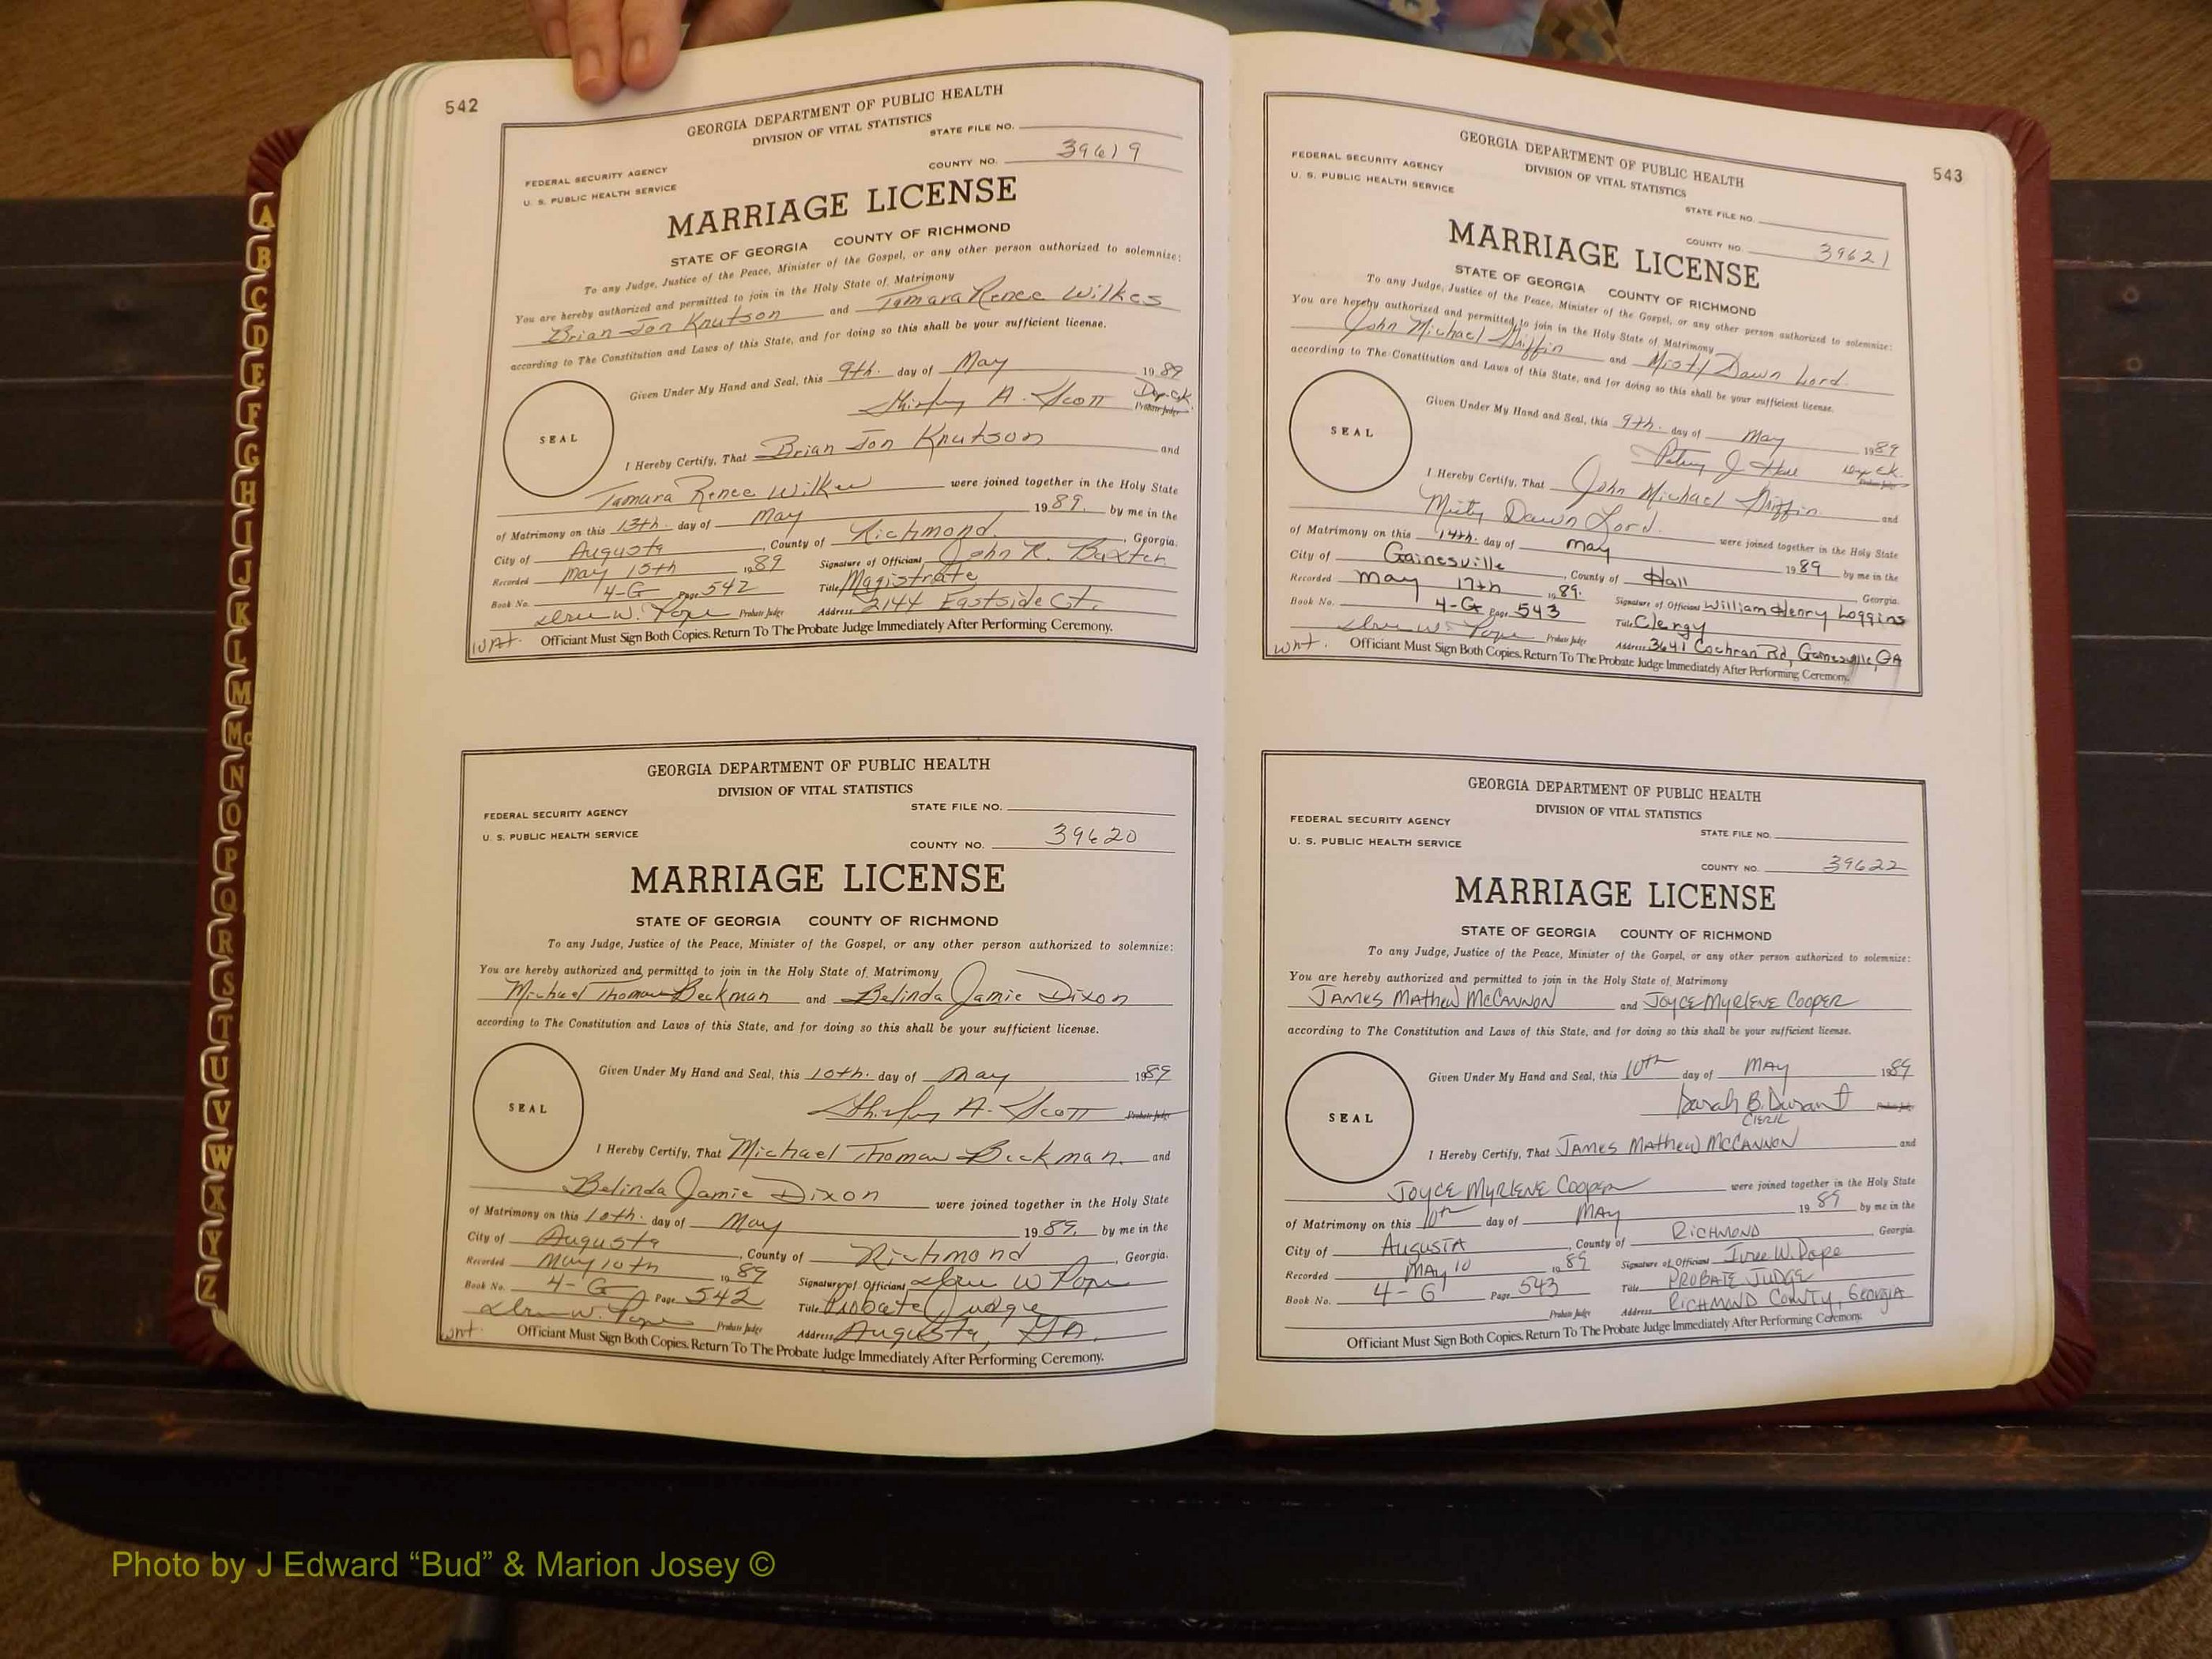 542
GEORGIA DEPARTMENT OF PUBLIC HEALTH
DIVISION OF VITAL STATISTICS
STATE FILE NO.
FEDERAL SECURITY AGENCY
COUNTY NO. 39619
U. S. PUBLIC HEALTH SERVICE
MARRIAGE LICENSE
STATE OF GEORGIA COUNTY OF RICHMOND
To any Judge, Justice of the Peace, Minister of the Gospel, or any other person authorized to solemnize:
You are hereby authorized and permitted to join in the Holy State of Matrimony
Brian Jon Knutson and Tamara Renee Wilkes
according to The Constitution and Laws of this State, and for doing so this shall be your sufficient license.
Given Under My Hand and Seal, this 9th. day of May 1989
Shirley A. Scott Dep. Ck. Probate Judge
SEAL
I Hereby Certify, That Brian Jon Knutson and
Tamara Renee Wilkes were joined together in the Holy State
of Matrimony on this 13th. day of May 1989. by me in the
City of Augusta, County of Richmond, Georgia.
Recorded May 15th 1989 Signature of Officiant John R. Baxter
Book No. 4-G Page 542 Title Magistrate
Probate Judge Address 2144 Eastside Ct.
wnt. Officiant Must Sign Both Copies. Return To The Probate Judge Immediately After Performing Ceremony.
GEORGIA DEPARTMENT OF PUBLIC HEALTH
DIVISION OF VITAL STATISTICS
FEDERAL SECURITY AGENCY STATE FILE NO.
U. S. PUBLIC HEALTH SERVICE COUNTY NO. 39620
MARRIAGE LICENSE
STATE OF GEORGIA COUNTY OF RICHMOND
To any Judge, Justice of the Peace, Minister of the Gospel, or any other person authorized to solemnize:
You are hereby authorized and permitted to join in the Holy State of Matrimony
Michael Thomas Beckman and Belinda Jamie Dixon
according to The Constitution and Laws of this State, and for doing so this shall be your sufficient license.
Given Under My Hand and Seal, this 10th. day of May 1989
Shirley A. Scott Probate Judge
SEAL
I Hereby Certify, That Michael Thomas Beckman. and
Belinda Jamie Dixon were joined together in the Holy State
of Matrimony on this 10th. day of May 1989. by me in the
City of Augusta, County of Richmond, Georgia.
Recorded May 10th 1989 Signature of Officiant W Pope
Book No. 4-G Page 542 Title Probate Judge
W. Pope Probate Judge Address Augusta, GA.
wnt. Officiant Must Sign Both Copies. Return To The Probate Judge Immediately After Performing Ceremony.
543
GEORGIA DEPARTMENT OF PUBLIC HEALTH
DIVISION OF VITAL STATISTICS
FEDERAL SECURITY AGENCY
U. S. PUBLIC HEALTH SERVICE
STATE FILE NO.
COUNTY NO. 39621
MARRIAGE LICENSE
STATE OF GEORGIA COUNTY OF RICHMOND
To any Judge, Justice of the Peace, Minister of the Gospel, or any other person authorized to solemnize:
You are hereby authorized and permitted to join in the Holy State of Matrimony
John Michael Griffin and Misty Dawn Lord.
according to The Constitution and Laws of this State, and for doing so this shall be your sufficient license.
Given Under My Hand and Seal, this 9th. day of May 1989
J Hall Dep Ck. Probate Judge
SEAL
I Hereby Certify, That John Michael Griffin and
Misty Dawn Lord. were joined together in the Holy State
of Matrimony on this 14th. day of May 1989 by me in the
City of Gainesville, County of Hall Georgia.
Recorded May 17th 1989. Signature of Officiant William Henry Loggins
Book No. 4-G Page 543 Title Clergy
W. Pope Probate Judge Address 3641 Cochran Rd, Gainesville, GA
wnt. Officiant Must Sign Both Copies. Return To The Probate Judge Immediately After Performing Ceremony.
GEORGIA DEPARTMENT OF PUBLIC HEALTH
DIVISION OF VITAL STATISTICS
FEDERAL SECURITY AGENCY STATE FILE NO.
U. S. PUBLIC HEALTH SERVICE
COUNTY NO. 39622
MARRIAGE LICENSE
STATE OF GEORGIA COUNTY OF RICHMOND
To any Judge, Justice of the Peace, Minister of the Gospel, or any other person authorized to solemnize:
You are hereby authorized and permitted to join in the Holy State of Matrimony
JAMES MATHEW McCANNON and JOYCE MYRLENE COOPER
according to The Constitution and Laws of this State, and for doing so this shall be your sufficient license.
Given Under My Hand and Seal, this 10th day of MAY 1989
Sarah B. Durant Probate Judge
CLERK
SEAL
I Hereby Certify, That JAMES MATHEW McCANNON and
JOYCE MYRLENE COOPER were joined together in the Holy State
of Matrimony on this 10th day of MAY 1989 by me in the
City of AUGUSTA, County of RICHMOND Georgia.
Recorded MAY 10 1989 Signature of Officiant W. Pope
Book No. 4-G Page 543 Title PROBATE JUDGE
Probate Judge Address RICHMOND COUNTY, GEORGIA
Officiant Must Sign Both Copies. Return To The Probate Judge Immediately After Performing Ceremony.
A
B
C
D
E
F
G
H
I
J
K
L
M
Mc
N
O
P
Q
R
S
T
U
V
W
X
Y
Z
Photo by J Edward “Bud” & Marion Josey ©